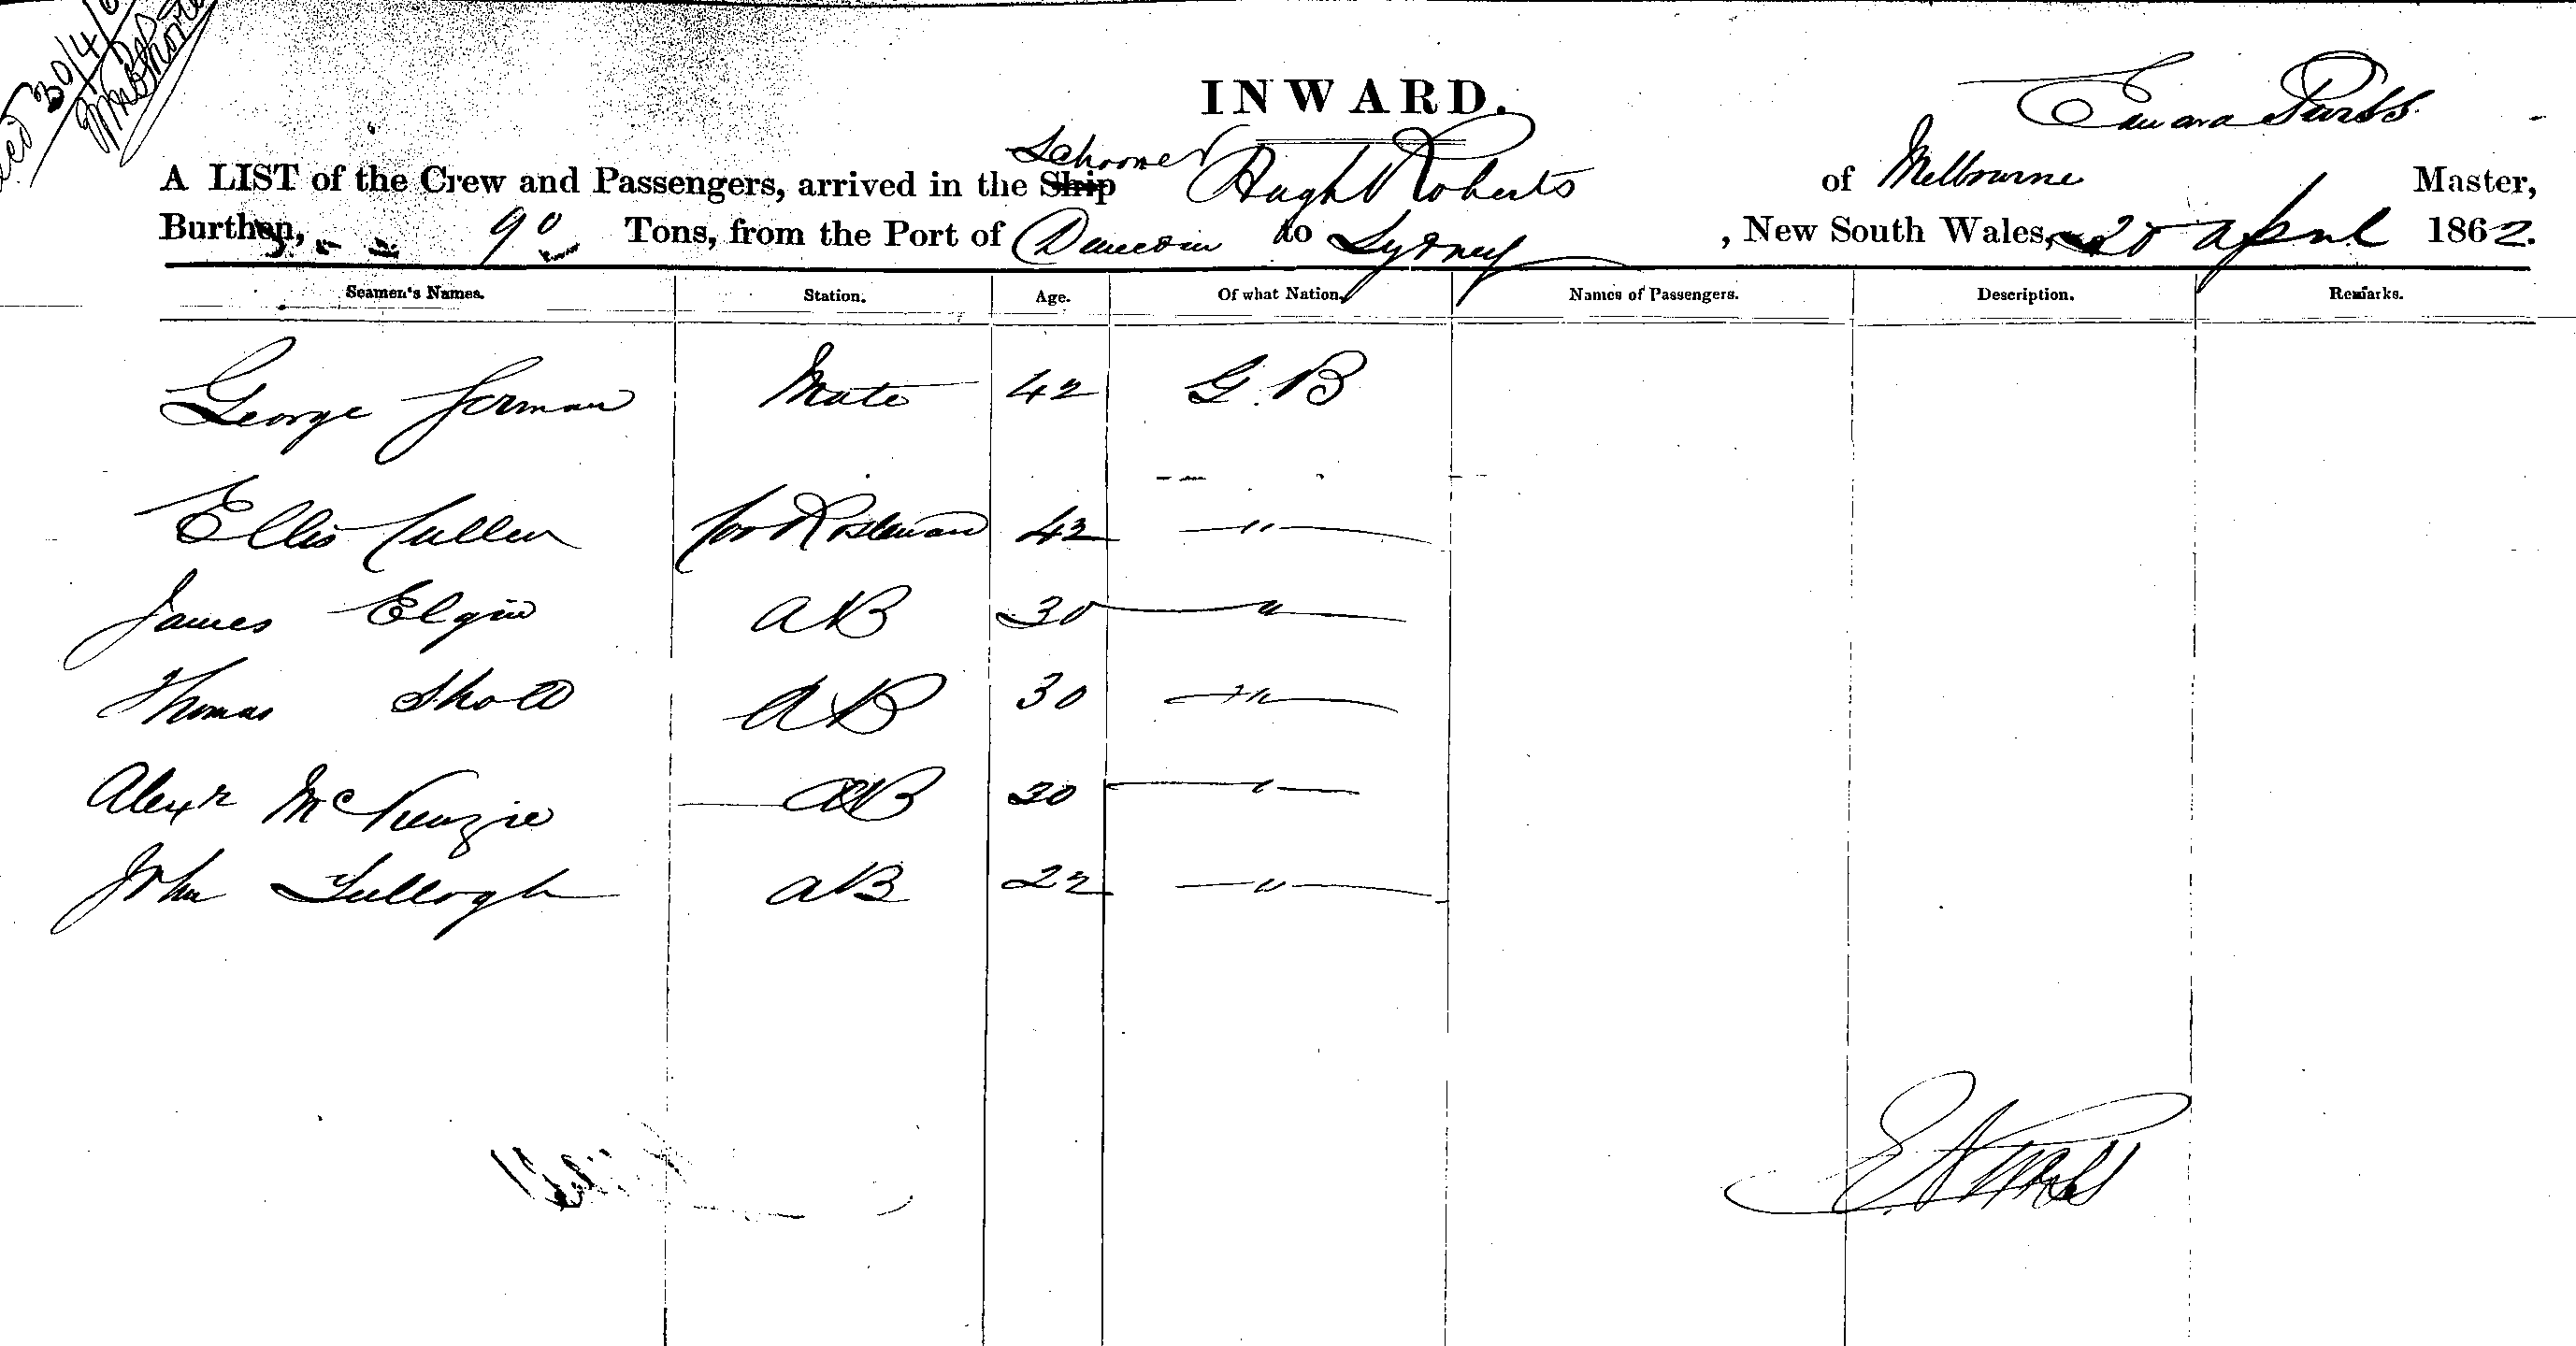 30/4/6
INWARD.
Edward Purss
A LIST of the Crew and Passengers, arrived in the Ship Schooner Hugh Roberts of Melbourne Master,
Burthen, 90 Tons, from the Port of to Sydney, New South Wales, April 1862.
Seamen's Names. Station. Age. Of what Nation. Names of Passengers. Description. Remarks.
George Jerman Mate 42 G.B
Ellis Cullen 42 "
James Elgin AB 30 "
Thomas AB 30 "
Alexr McKenzie AB 30 "
John Tullogh AB 22 "